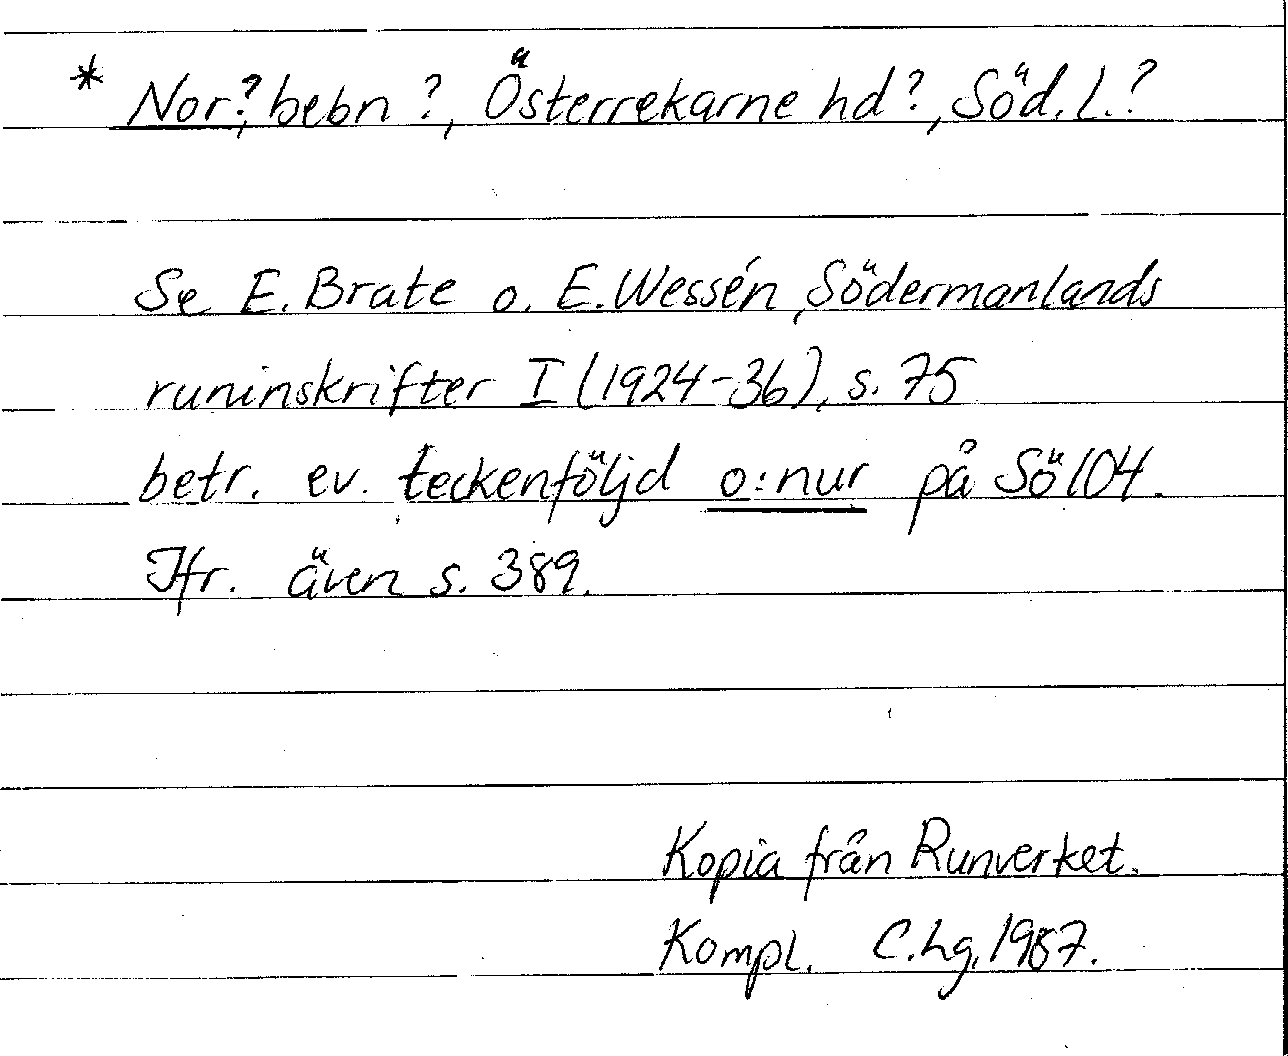 * Nor?, bebn?, Österrekarne hd?, Söd. l.?
Se E. Brate o. E. Wessén, Södermanlands
runinskrifter I (1924-36), s. 75
betr. ev. teckenföljd o:nur på Sö 104.
Jfr. även s. 389.
Kopia från Runverket.
Kompl. C.Lg, 1987.